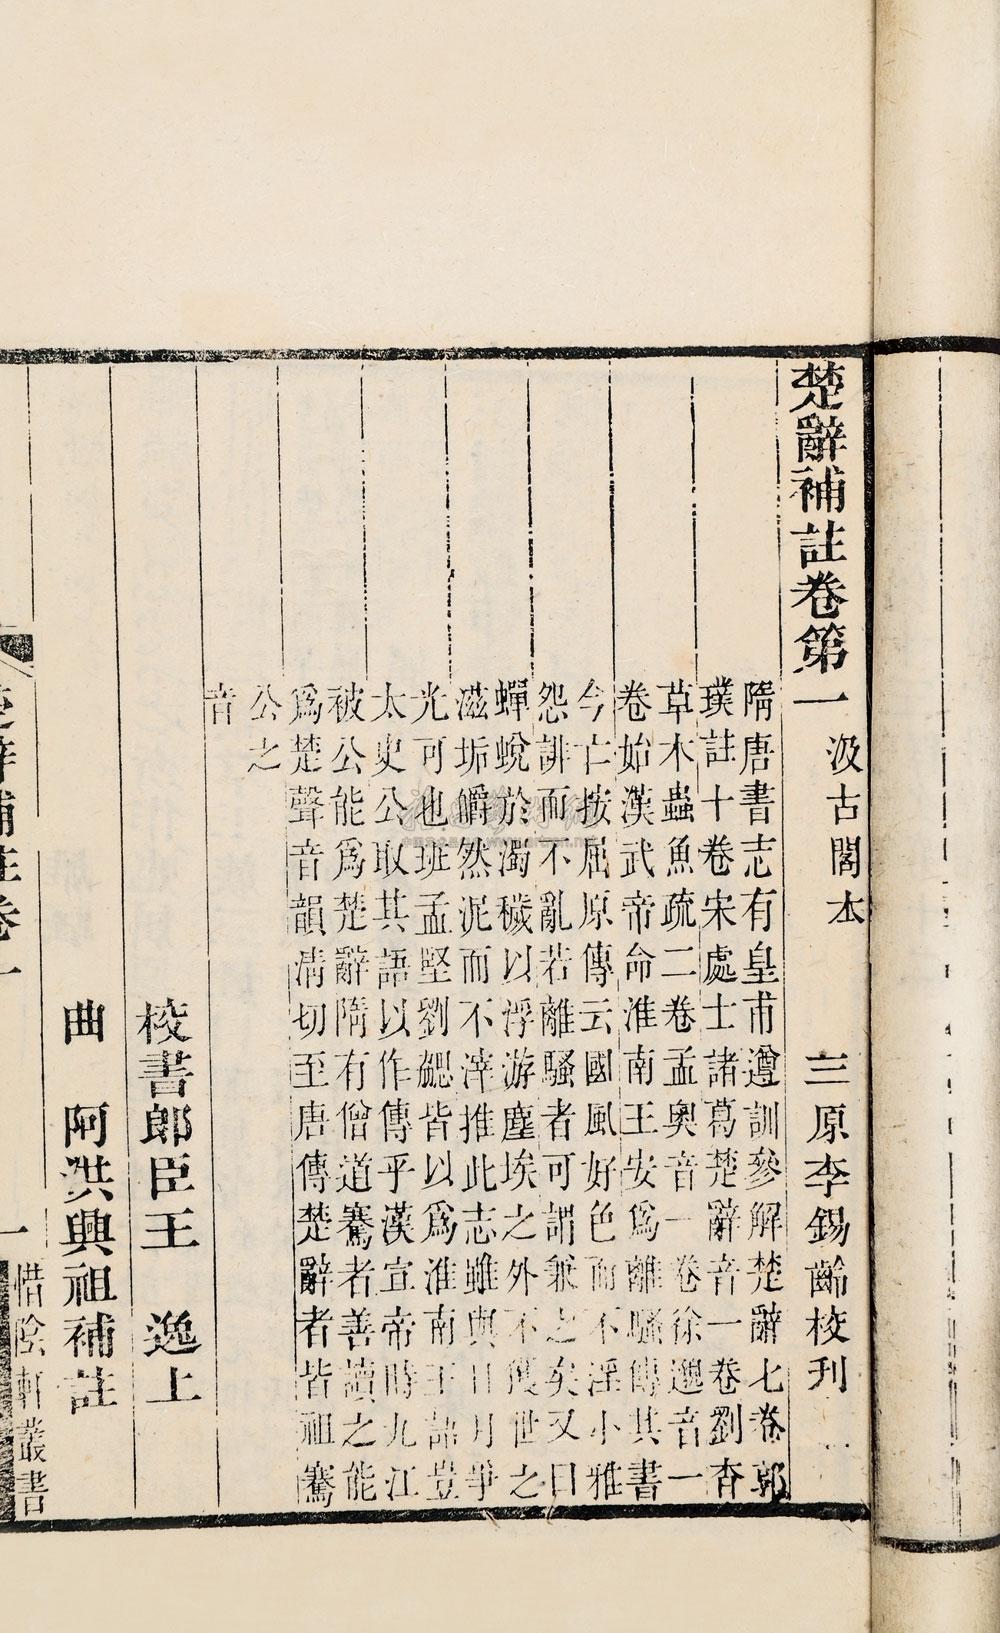 楚辭補註卷第一 汲古閣本 三原李錫齡校刊
隋唐書志有皇甫遵訓參解楚辭七卷郭
璞註十卷宋處士諸葛楚辭音一卷劉杳
草木蟲魚疏二卷孟奧音一卷徐邈音一
卷始漢武帝命淮南王安爲離騷傳其書
今亡按屈原傳云國風好色而不淫小雅
怨誹而不亂若離騷者可謂兼之矣又曰
蟬蛻於濁穢以浮游塵埃之外不獲世之
滋垢皭然泥而不滓推此志雖與日月爭
光可也班孟堅劉勰皆以爲淮南王語豈
太史公取其語以作傳乎漢宣帝時九江
被公能爲楚辭隋有僧道騫者善讀之能
爲楚聲音韻清切至唐傳楚辭者皆祖騫
公之
音
校書郎臣王 逸上
曲 阿洪興祖補註
楚辭補註卷一
一
惜陰軒叢書